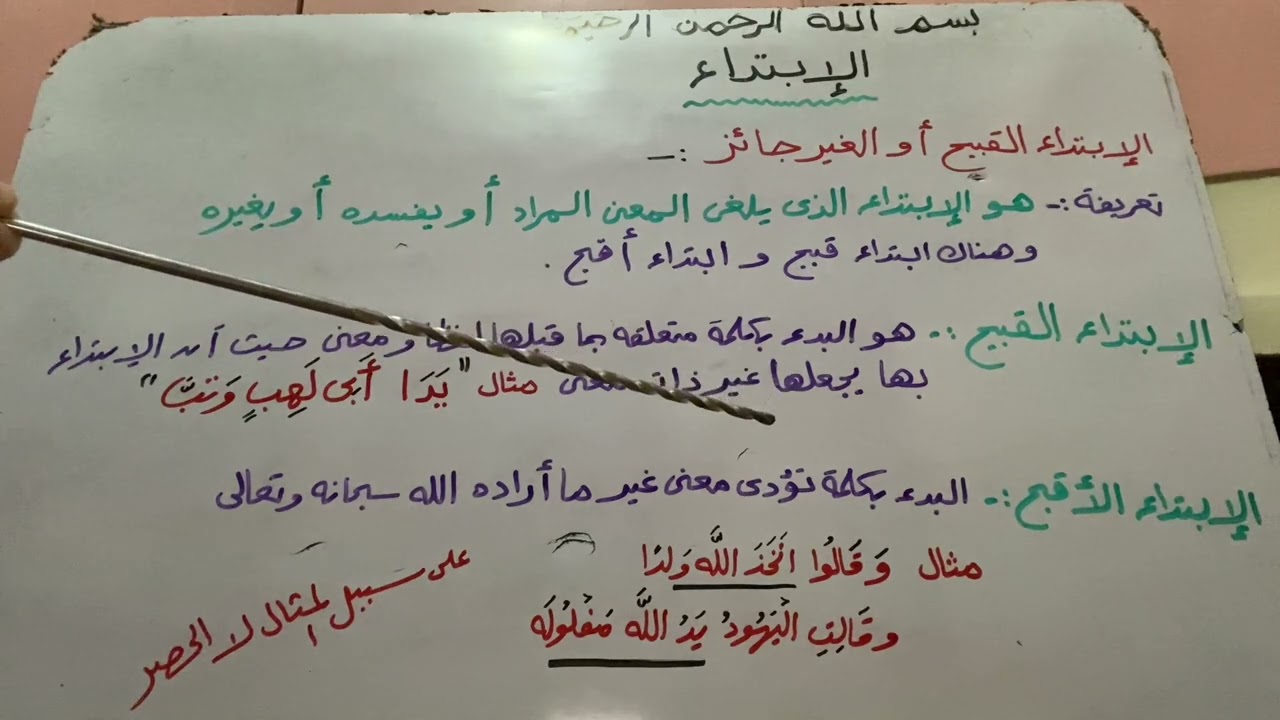 بسم الله الرحمن الرحيم
الإبتداء
الإبتداء القبيح أو الغير جائز :ـ
تعريفة :ـ هو الإبتداء الذى يلغى المعنى المراد أو يفسده أو يغيره
وهناك ابتداء قبيح و ابتداء أقبح .
الإبتداء القبيح :ـ هو البدء بكلمة متعلقه بما قبلها لفظا ومعنى حيث أن الإبتداء
بها يجعلها غير ذات معنى مثال "يَدَا أَبِى لَهِبٍ وَتبَّ"
الإبتداء الأقبح :ـ البدء بكلمة تؤدى معنى غير ما أراده الله سبحانه وتعالى
مثال وَقَالُوا اتَّخَذَ اللَّه وَلدًا
وقَالتِ الْيَهُودُ يَدُ اللَّه مَغْلُولَه
على سبيل المثال لا الحصر